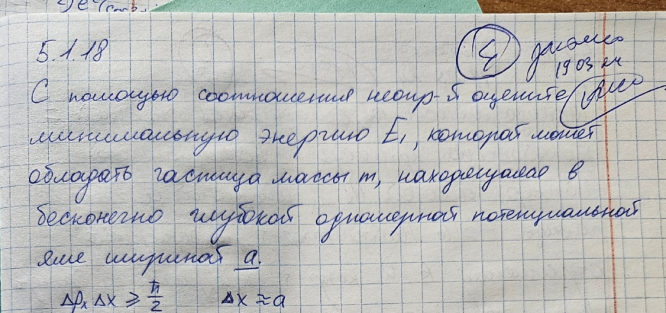 5.1.18
4
19 03 24
С помощью соотношения неопр-й оцените
минимальную энергию E₁, которой может
обладать частица массы m, находящаяся в
бесконечно глубокой одномерной потенциальной
яме шириной a.
Δpₓ Δx ⩾ ħ/2 Δx ≈ a